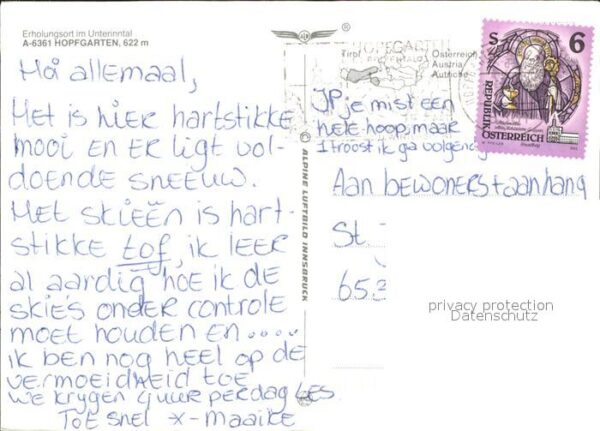 Erholungsort im Unterinntal
A-6361 HOPFGARTEN, 622 m
Hoi allemaal,
Het is hier hartstikke
mooi en er ligt vol-
doende sneeuw.
Het skieën is hart-
stikke tof, ik leer
al aardig hoe ik de
skies onder controle
moet houden en....
ik ben nog heel op de
vermoeidheid toe
we krygen 4 uur per dag les
Toe snel x-maaike
ALPINE LUFTBILD INNSBRUCK
®
HOPFGARTEN
Tirol
Österreich
Austria
Autriche
S 6
REPUBLIK
ÖSTERREICH
JP je mist een
hele hoop, maar
1 troost ik ga volgend
Aan bewoners + aanhang
St.
653
privacy protection
Datenschutz